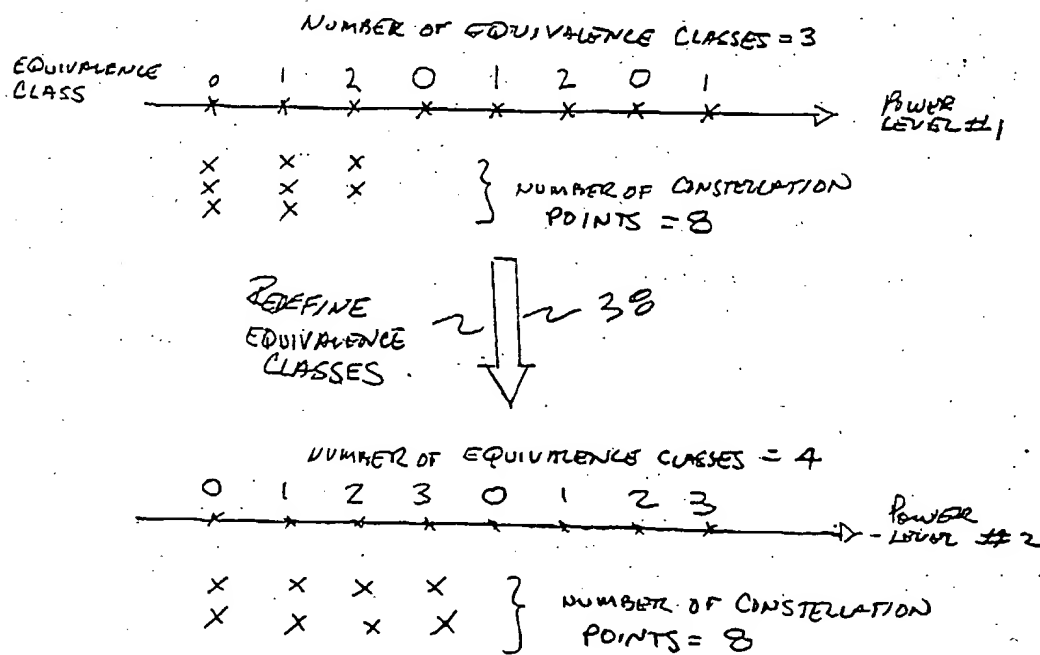 NUMBER OF EQUIVALENCE CLASSES = 3
EQUIVALENCE
CLASS
0 1 2 0 1 2 0 1
POWER
LEVEL #1
NUMBER OF CONSTELLATION
POINTS = 8
REDEFINE
EQUIVALENCE
CLASSES
38
NUMBER OF EQUIVALENCE CLASSES = 4
0 1 2 3 0 1 2 3
POWER
LEVEL #2
NUMBER OF CONSTELLATION
POINTS = 8